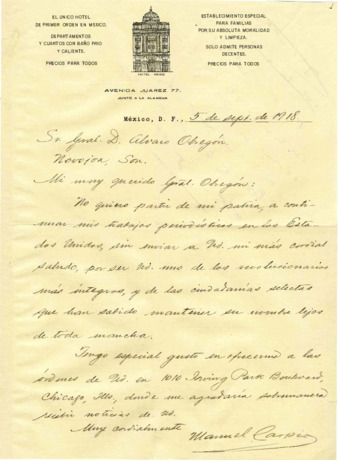 EL UNICO HOTEL
DE PRIMER ORDEN EN MEXICO.
DEPARTAMENTOS
Y CUARTOS CON BAÑO FRIO
Y CALIENTE.
PRECIOS PARA TODOS
ESTABLECIMIENTO ESPECIAL
PARA FAMILIAS
POR SU ABSOLUTA MORALIDAD
Y LIMPIEZA.
SOLO ADMITE PERSONAS
DECENTES.
PRECIOS PARA TODOS
HOTEL
AVENIDA JUAREZ 77.
JUNTO A LA ALAMEDA
México, D. F., 5 de sept. de 1918.
Sr Gral. D. Alvaro Obregón,
Navojoa, Son.
Mi muy querido Gral. Obregón:
No quiero partir de mi patria, a conti-
nuar mis trabajos periodísticos en los Esta-
dos Unidos, sin enviar a Ud. mi más cordial
saludo, por ser Ud. uno de los revolucionarios
más íntegros, y de las ciudadanías selectas
que han sabido mantener su nombre lejos
de toda mancha.
Tengo especial gusto en ofrecerme a las
órdenes de Ud. en 1010 Irving Park Boulevard,
Chicago, Ills, donde me agradaría sobremanera
recibir noticias de Ud.
Muy cordialmente
Manuel